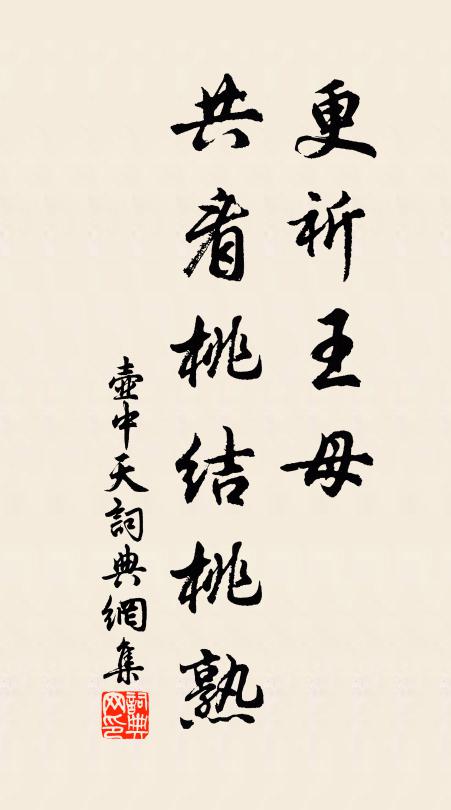 更祈王母
共看桃结桃熟
壶中天詞典網集
詞典网印